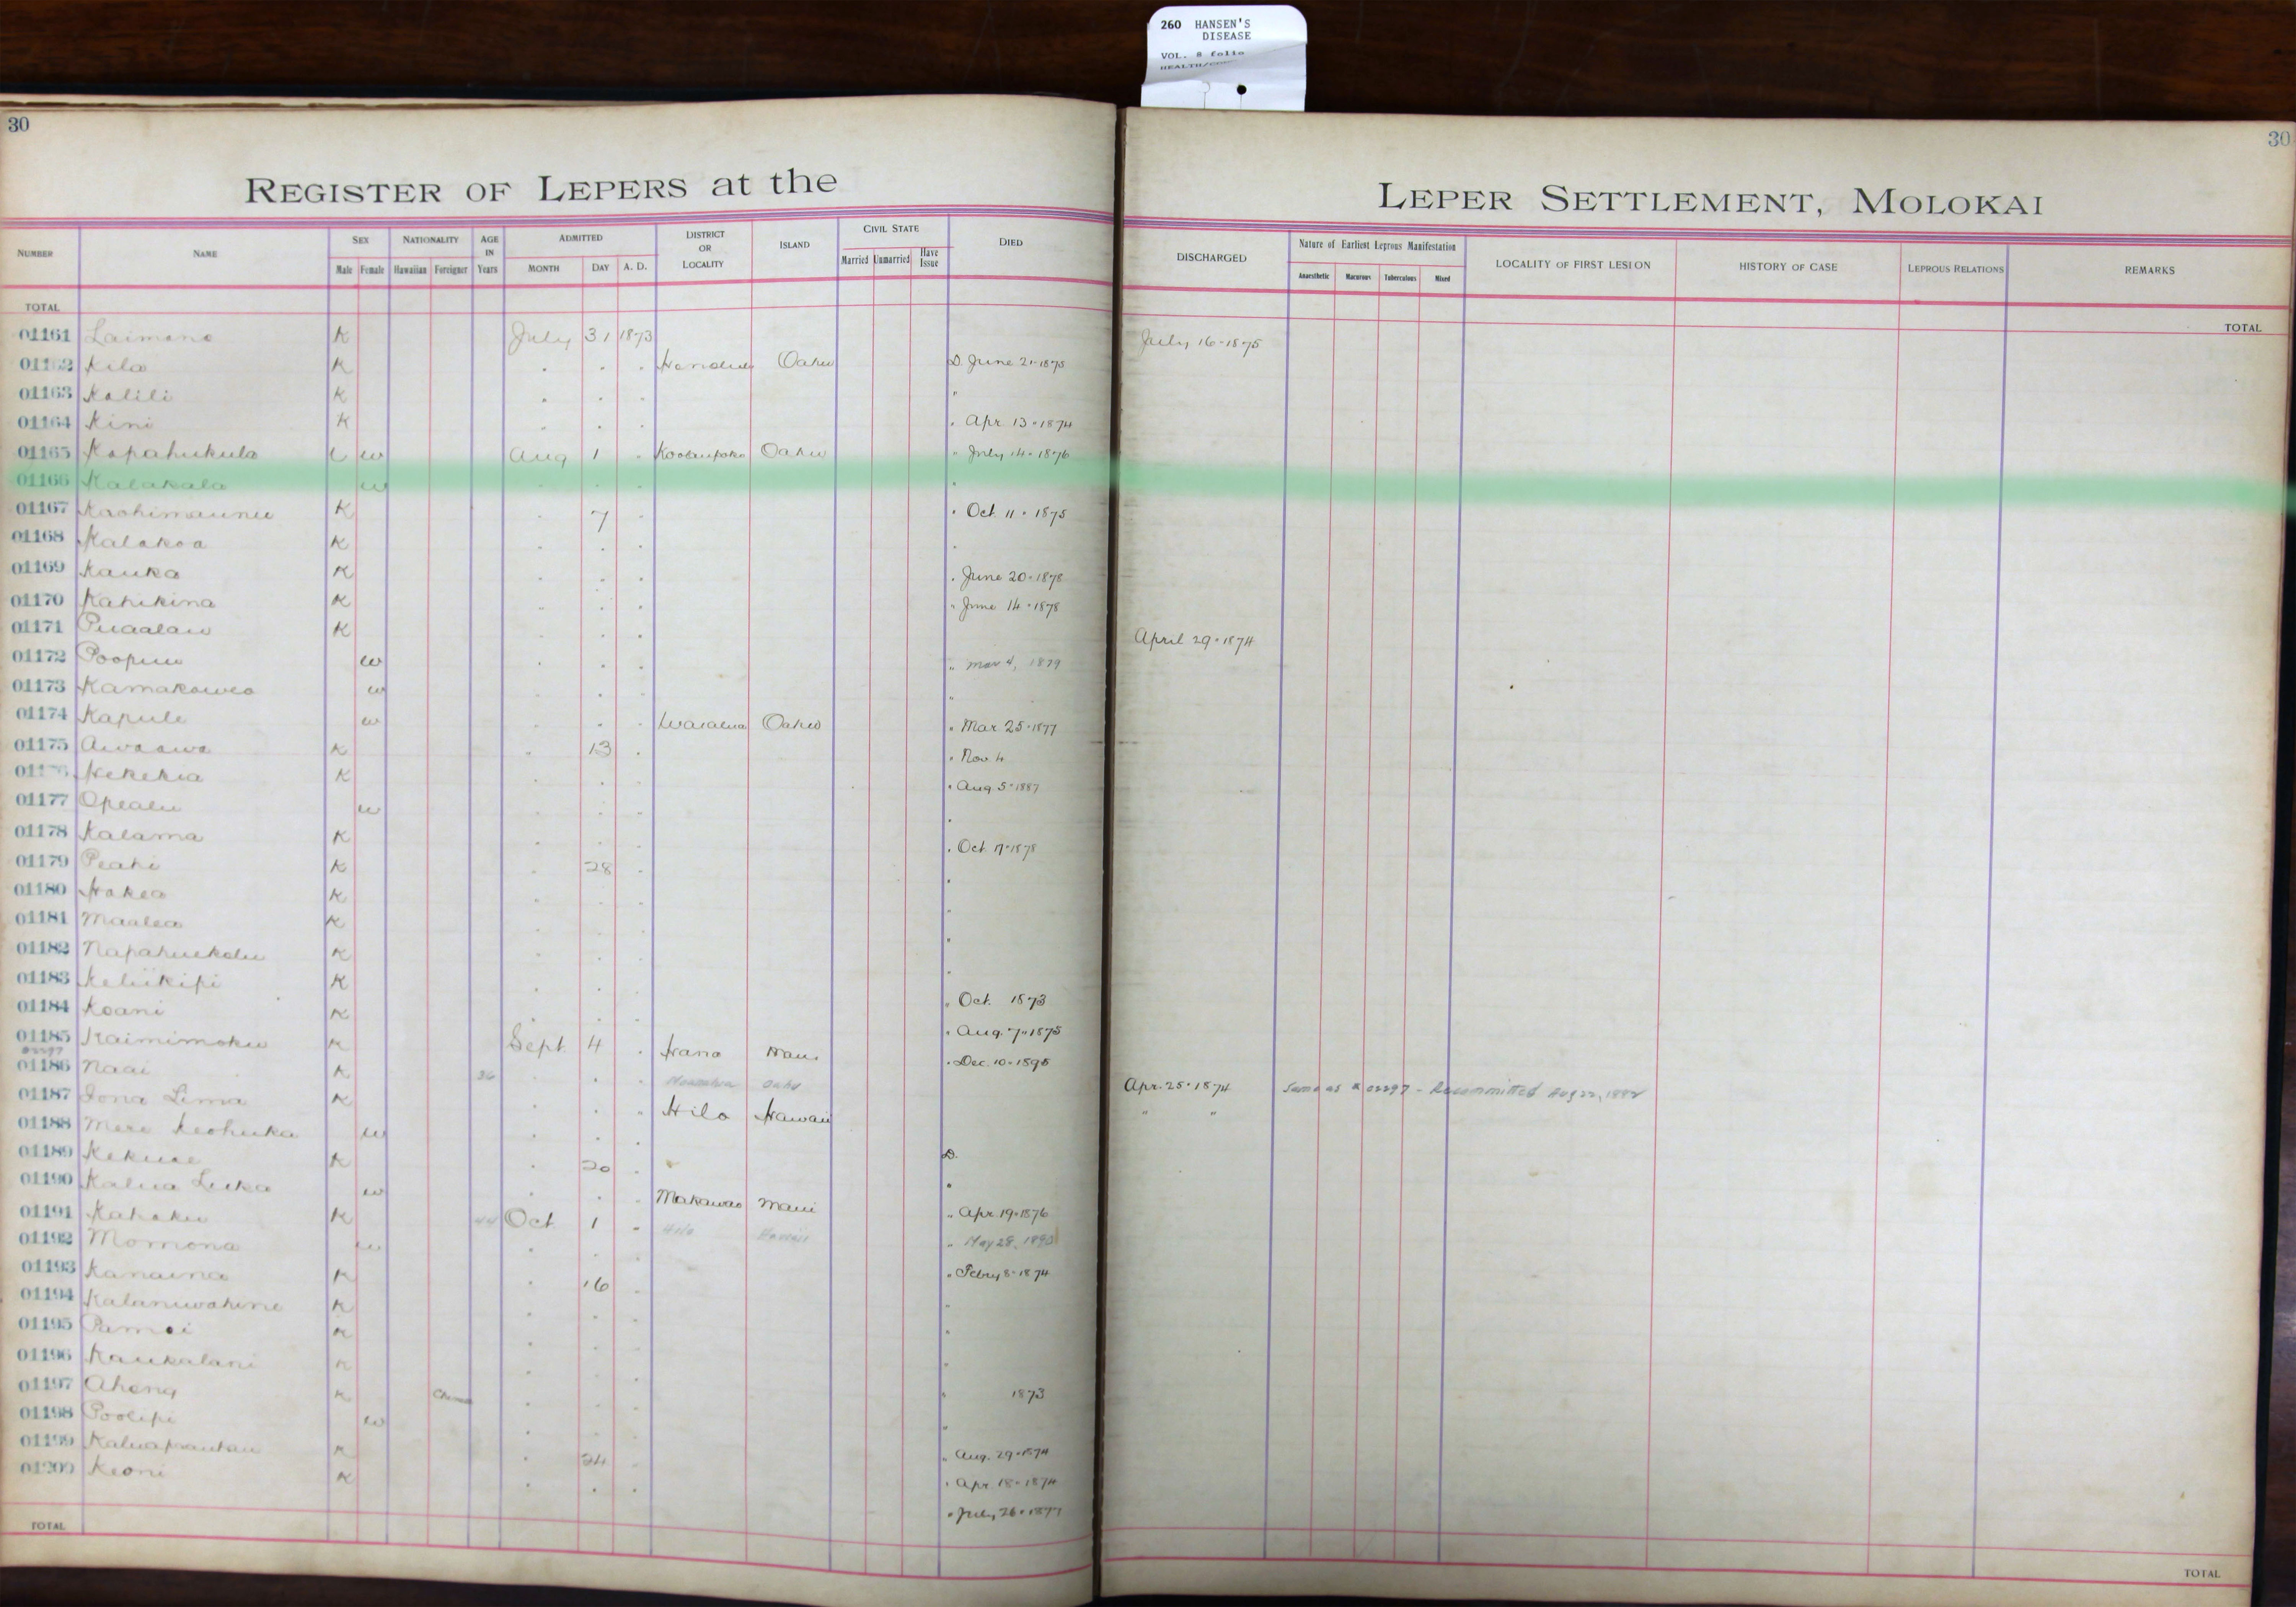 260 HANSEN'S
DISEASE
VOL. 8 folio
30
30
REGISTER OF LEPERS at the
LEPER SETTLEMENT, MOLOKAI
NUMBER NAME SEX Male Female NATIONALITY Hawaiian Foreigner AGE IN Years ADMITTED MONTH DAY A. D. DISTRICT OR LOCALITY ISLAND CIVIL STATE Married Unmarried Have Issue DIED
DISCHARGED Nature of Earliest Leprous Manifestation Anaesthetic Macurous Tuberculous Mixed LOCALITY OF FIRST LESION HISTORY OF CASE LEPROUS RELATIONS REMARKS
TOTAL
TOTAL
01161 Laimano K July 31 1873 July 16-1875
01162 Kila K . . . Honolulu Oahu D. June 21-1875
01163 Kalili K . . . "
01164 Kini K . . . " Apr. 13-1874
01165 Kapahukula w Aug 1 . Koolaupoko Oahu " July 14-1876
01166 Kalakala w . . . "
01167 Kaohimaunu K . 7 . " Oct. 11-1875
01168 Kalakoa K . . . "
01169 Kauka K . . . " June 20-1878
01170 Kahikina K . . . " June 14-1878
01171 Puaalau K . . . April 29-1874
01172 Poopuu w . . . " Mar 4, 1879
01173 Kamakawea w . . . "
01174 Kapule w . . . Waialua Oahu " Mar. 25-1877
01175 Awaawa K . 13 . " Nov. 4
01176 Kekekia K . . . " Aug. 5-1887
01177 Opealu w . . . "
01178 Kalama K . . . " Oct. 17-1878
01179 Peahi K . 28 . "
01180 Hakea K . . . "
01181 Maalea K . . . "
01182 Napahuekolu K . . . "
01183 Keliikipi K . . . " Oct. 1873
01184 Koani K . . . " Aug. 7-1875
01185 Kaimimoku K Sept. 4 . Hana Maui " Dec. 10-1895
01186 Naai K 36 . . . Oahu Apr. 25-1874 Same as # 02297 - Recommitted Aug 22, 1882
01187 Iona Lima K . . . Hilo Hawaii " "
01188 Mere Keohuka w . . .
01189 Kekuae K . 20 . D.
01190 Kalua Luka w . . . Makawao Maui "
01191 Kahaku K 44 Oct. 1 . Hilo Hawaii " Apr. 19-1876
01192 Momona w . . . " May 28, 1890
01193 Kanaina K . 16 . " Febry 8-1874
01194 Kalaniwahine K . . . "
01195 Pamai K . . . "
01196 Kaukalani K . . . "
01197 Ahong K . . . " 1873
01198 Poolipi w . . . "
01199 K . 24 . " Aug. 29-1874
01200 Keoni K . . . " Apr. 18-1874
" July 26-1877
TOTAL
TOTAL